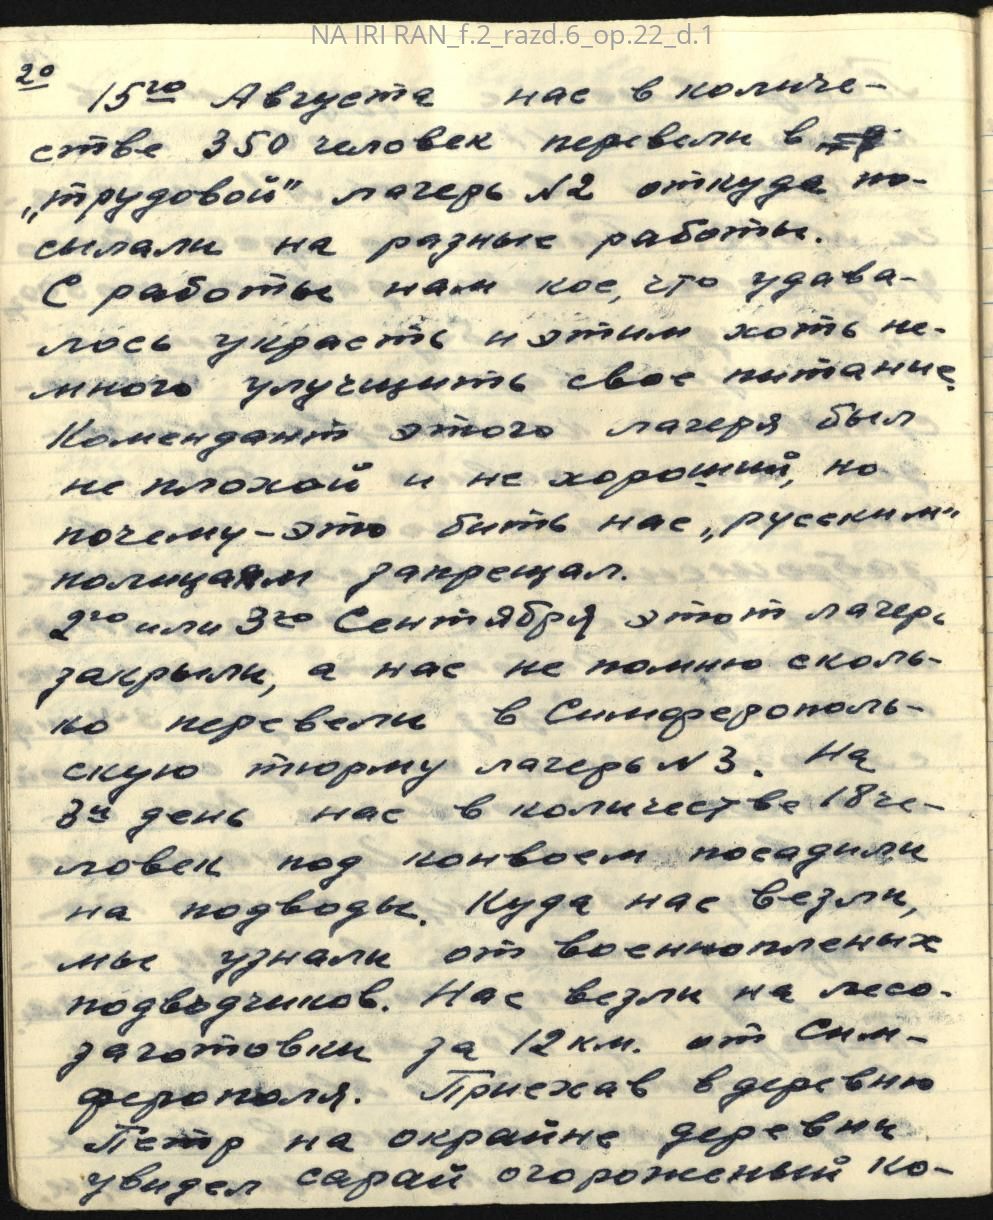 NA IRI RAN_f.2_razd.6_op.22_d.1
20
15го Августа нас в количе-
стве 350 человек перевели в
„трудовой" лагерь N2 откуда по-
сылали на разные работы.
С работы нам кое, что удава-
лось украсть и этим хоть не-
много улучшить свое питание.
Комендант этого лагеря был
не плохой и не хороший, но
почему-это бить нас „русским"
полицаям запрещал.
2го или 3го Сентября этот лагерь
закрыли, а нас не помню сколь-
ко перевели в Симферополь-
скую тюрьму лагерь N3. На
3й день нас в количестве 18 че-
ловек под конвоем посадили
на подводы. Куда нас везли,
мы узнали от военнопленых
подводчиков. Нас везли на лесо-
заготовки за 12 км. от Сим-
ферополя. Приехав в деревню
Петр на окрайне деревни
увидел сарай огороженый ко-